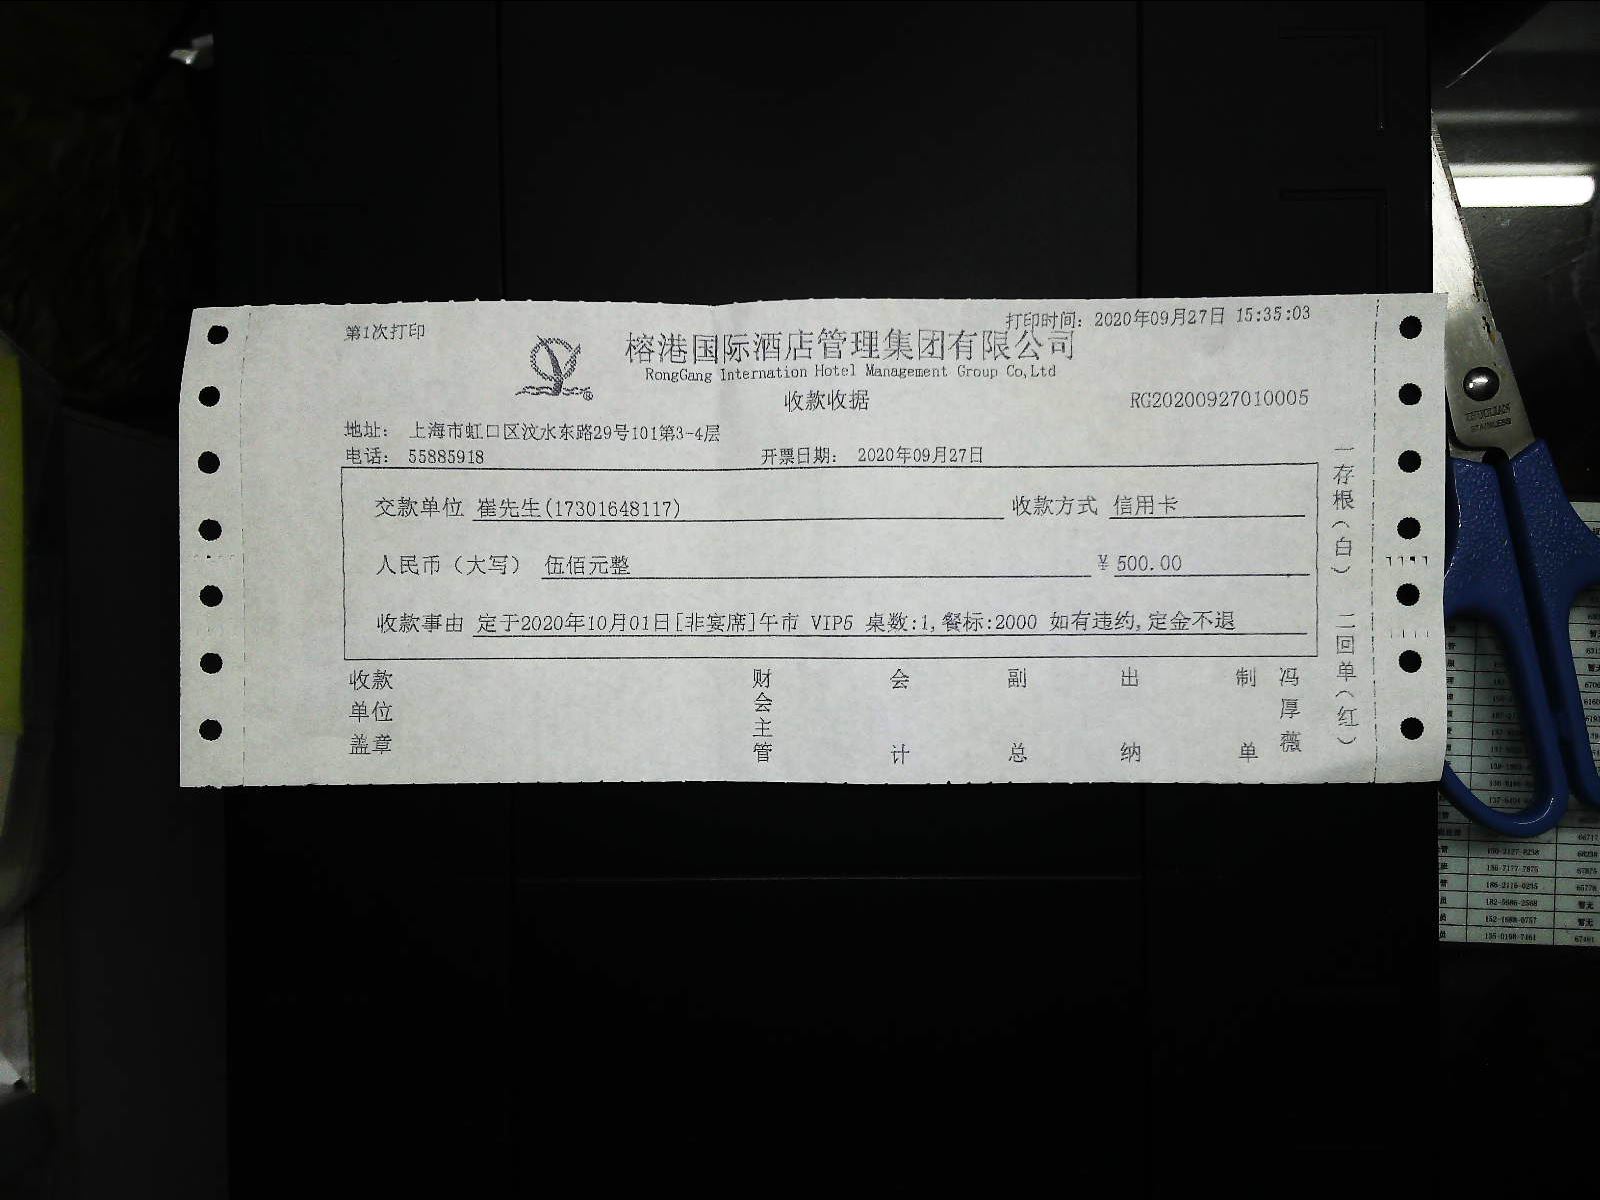 第1次打印
打印时间: 2020年09月27日 15:35:03
榕港国际酒店管理集团有限公司
RongGang Internation Hotel Management Group Co,Ltd
收款收据
RG20200927010005
地址: 上海市虹口区汶水东路29号101第3-4层
电话: 55885918
开票日期: 2020年09月27日
交款单位 崔先生(17301648117)
收款方式 信用卡
人民币(大写) 伍佰元整
¥500.00
收款事由 定于2020年10月01日[非宴席]午市 VIP5 桌数:1,餐标:2000 如有违约,定金不退
收款单位盖章
财会主管
会计
副总
出纳
制单
冯厚薇
一存根(白) 二回单(红)
STAINLESS